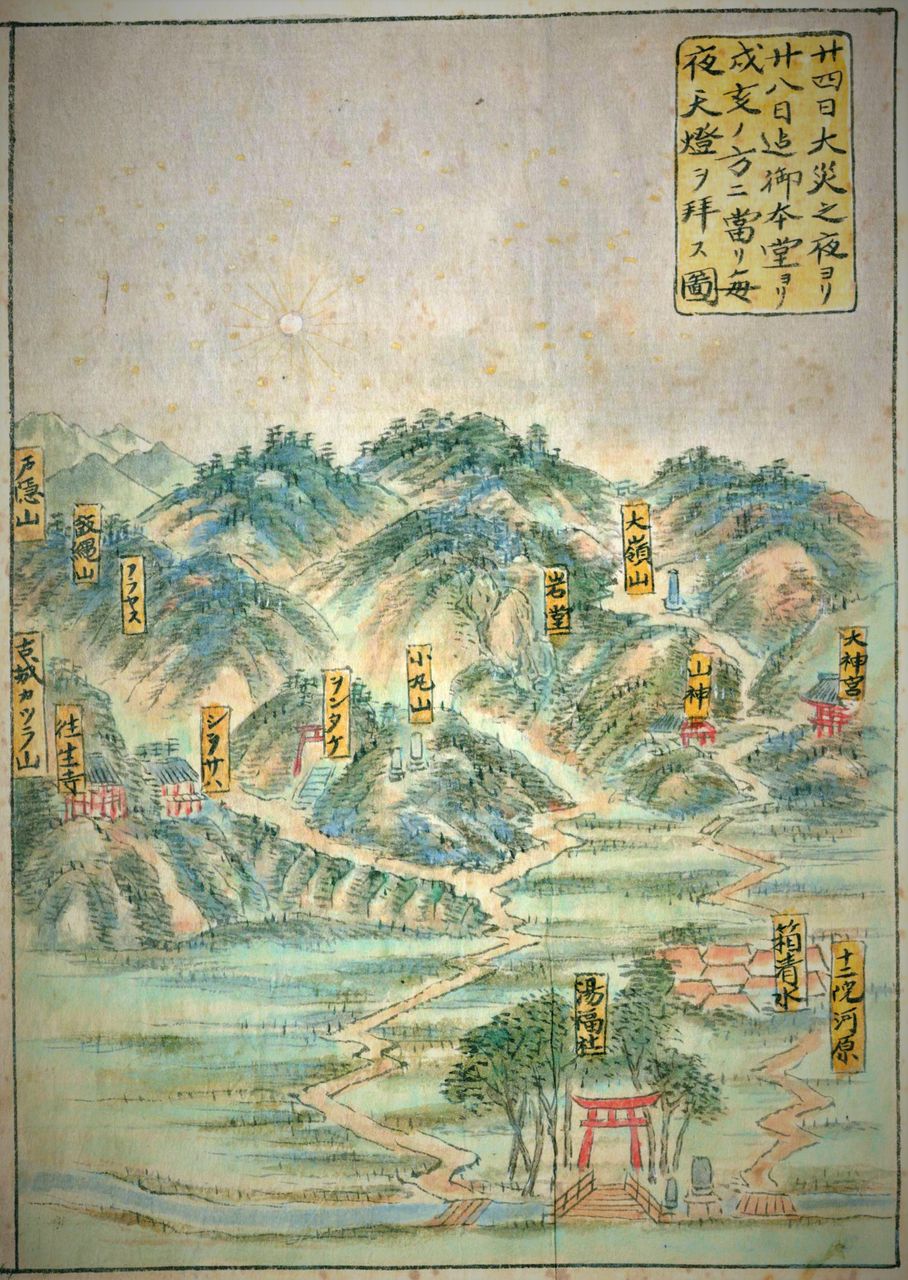 廿四日大災之夜ヨリ
廿八日迠御本堂ヨリ
戌亥ノ方ニ當リ毎
夜天燈ヲ拜ス圖
戸隠山
飯縄山
アラヤス
大嶺山
岩堂
大神宮
山神
小丸山
ヲンタケ
シラサハ
往生寺
古城カツラ山
箱清水
十二院河原
湯福社